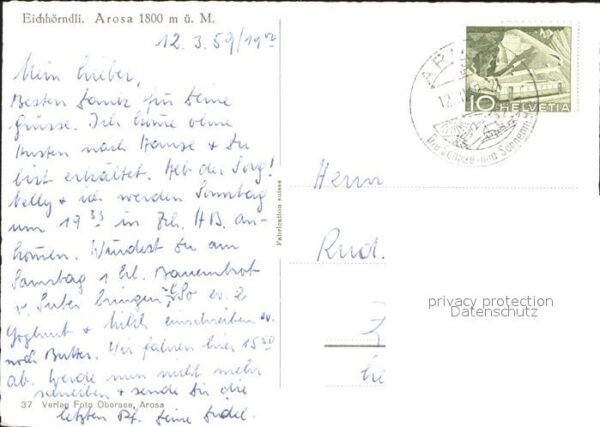 Eichhörndli. Arosa 1800 m ü. M.
12. 3. 59 / 19
Mein Lieber,
Besten Dank für Deine
Grüsse. Ich komme ohne
Husten nach Hause & Du
bist erkältet. Heb der Sorg!
Nelly & ich werden Sonntag
um 19 33 in Zch. HB. an-
kommen. Würdest Du am
Samstag 1 Bauernbrot
v. Suter bringen? So ev. 2
Yoghurt & Milch einschreiben ev.
noch Butter. Wir fahren hier 15 50
ab. Werde nun nicht mehr
schreiben & sende Dir die
letzten Deine
37 Verlag Foto Obersee, Arosa
Fabrication suisse
10 HELVETIA
AR
12.
Herrn
Rud.
Z
privacy protection
Datenschutz